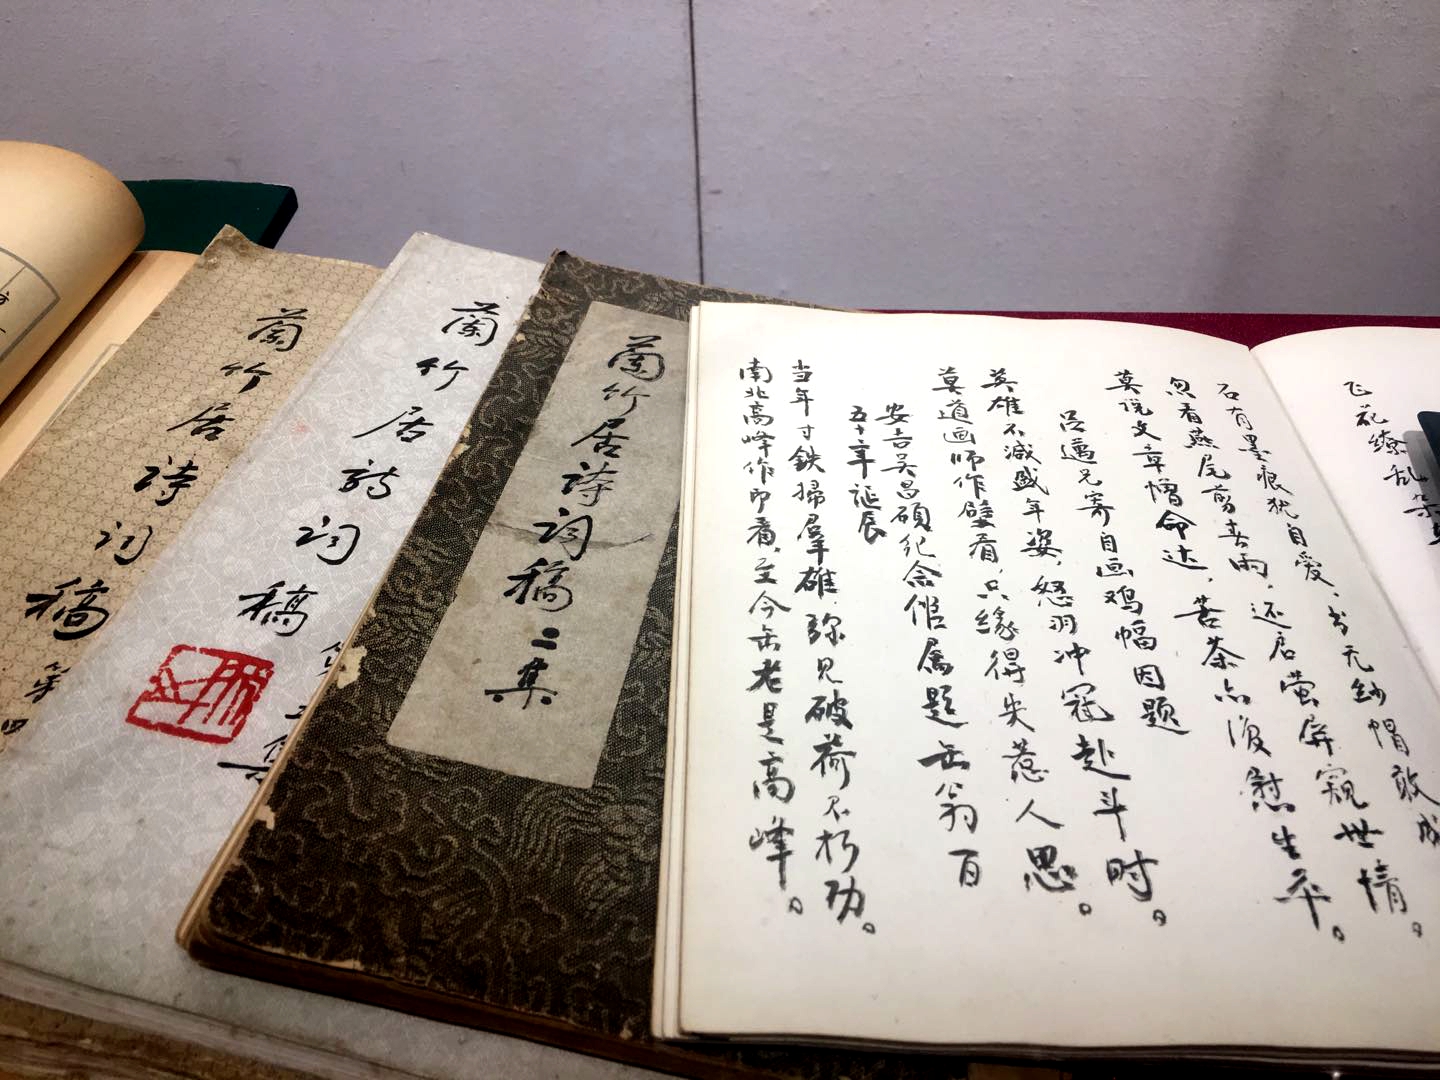 蘭竹居诗词稿第四
蘭竹居诗词稿
蘭竹居诗词稿二集
飞花缭乱
石有墨痕犹自爱，纱帽敢成
忽看燕尾剪春雨，还启萤屏窥世情。
莫说文章憎命达，苦茶亦復慰生平。
吕邁兄寄自画鸡幅因题
英雄不减盛年姿，怒羽冲冠赴斗时。
莫道画师作壁看，只缘得失惹人思。
安吉吴昌硕纪念馆属题缶翁百
五十年诞辰
当年寸鉄掃羣雄，弥见破荷不朽功。
南北高峰作印看，至今缶老是高峰。